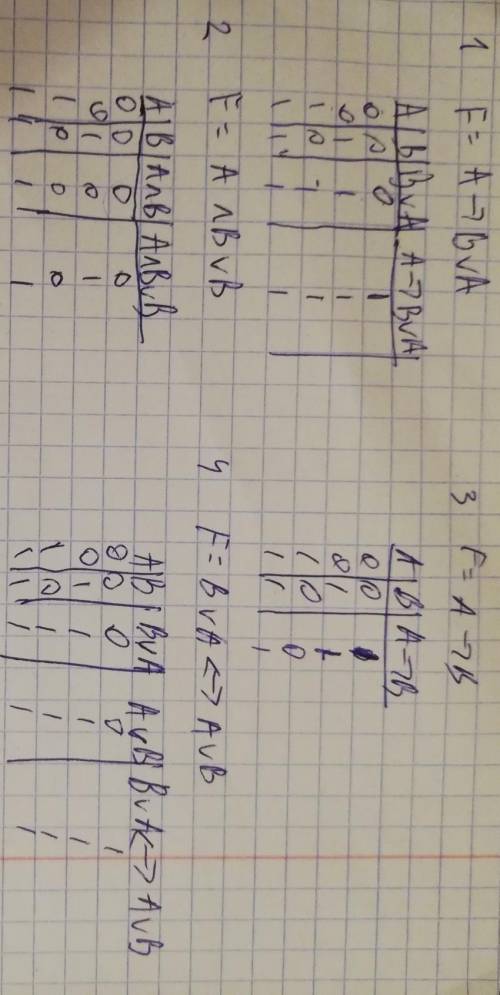 1 F = A → B ∨ A
A | B | B ∨ A | A → B ∨ A
0 | 0 | 0 | 1
0 | 1 | 1 | 1
1 | 0 | 1 | 1
1 | 1 | 1 | 1
2 F = A ∧ B ∨ B
A | B | A ∧ B | A ∧ B ∨ B
0 | 0 | 0 | 0
0 | 1 | 0 | 1
1 | 0 | 0 | 0
1 | 1 | 1 | 1
3 F = A → B
A | B | A → B
0 | 0 | 1
0 | 1 | 1
1 | 0 | 0
1 | 1 | 1
4 F = B ∨ A <=> A ∨ B
A | B | B ∨ A | A ∨ B | B ∨ A <=> A ∨ B
0 | 0 | 0 | 0 | 1
0 | 1 | 1 | 1 | 1
1 | 0 | 1 | 1 | 1
1 | 1 | 1 | 1 | 1